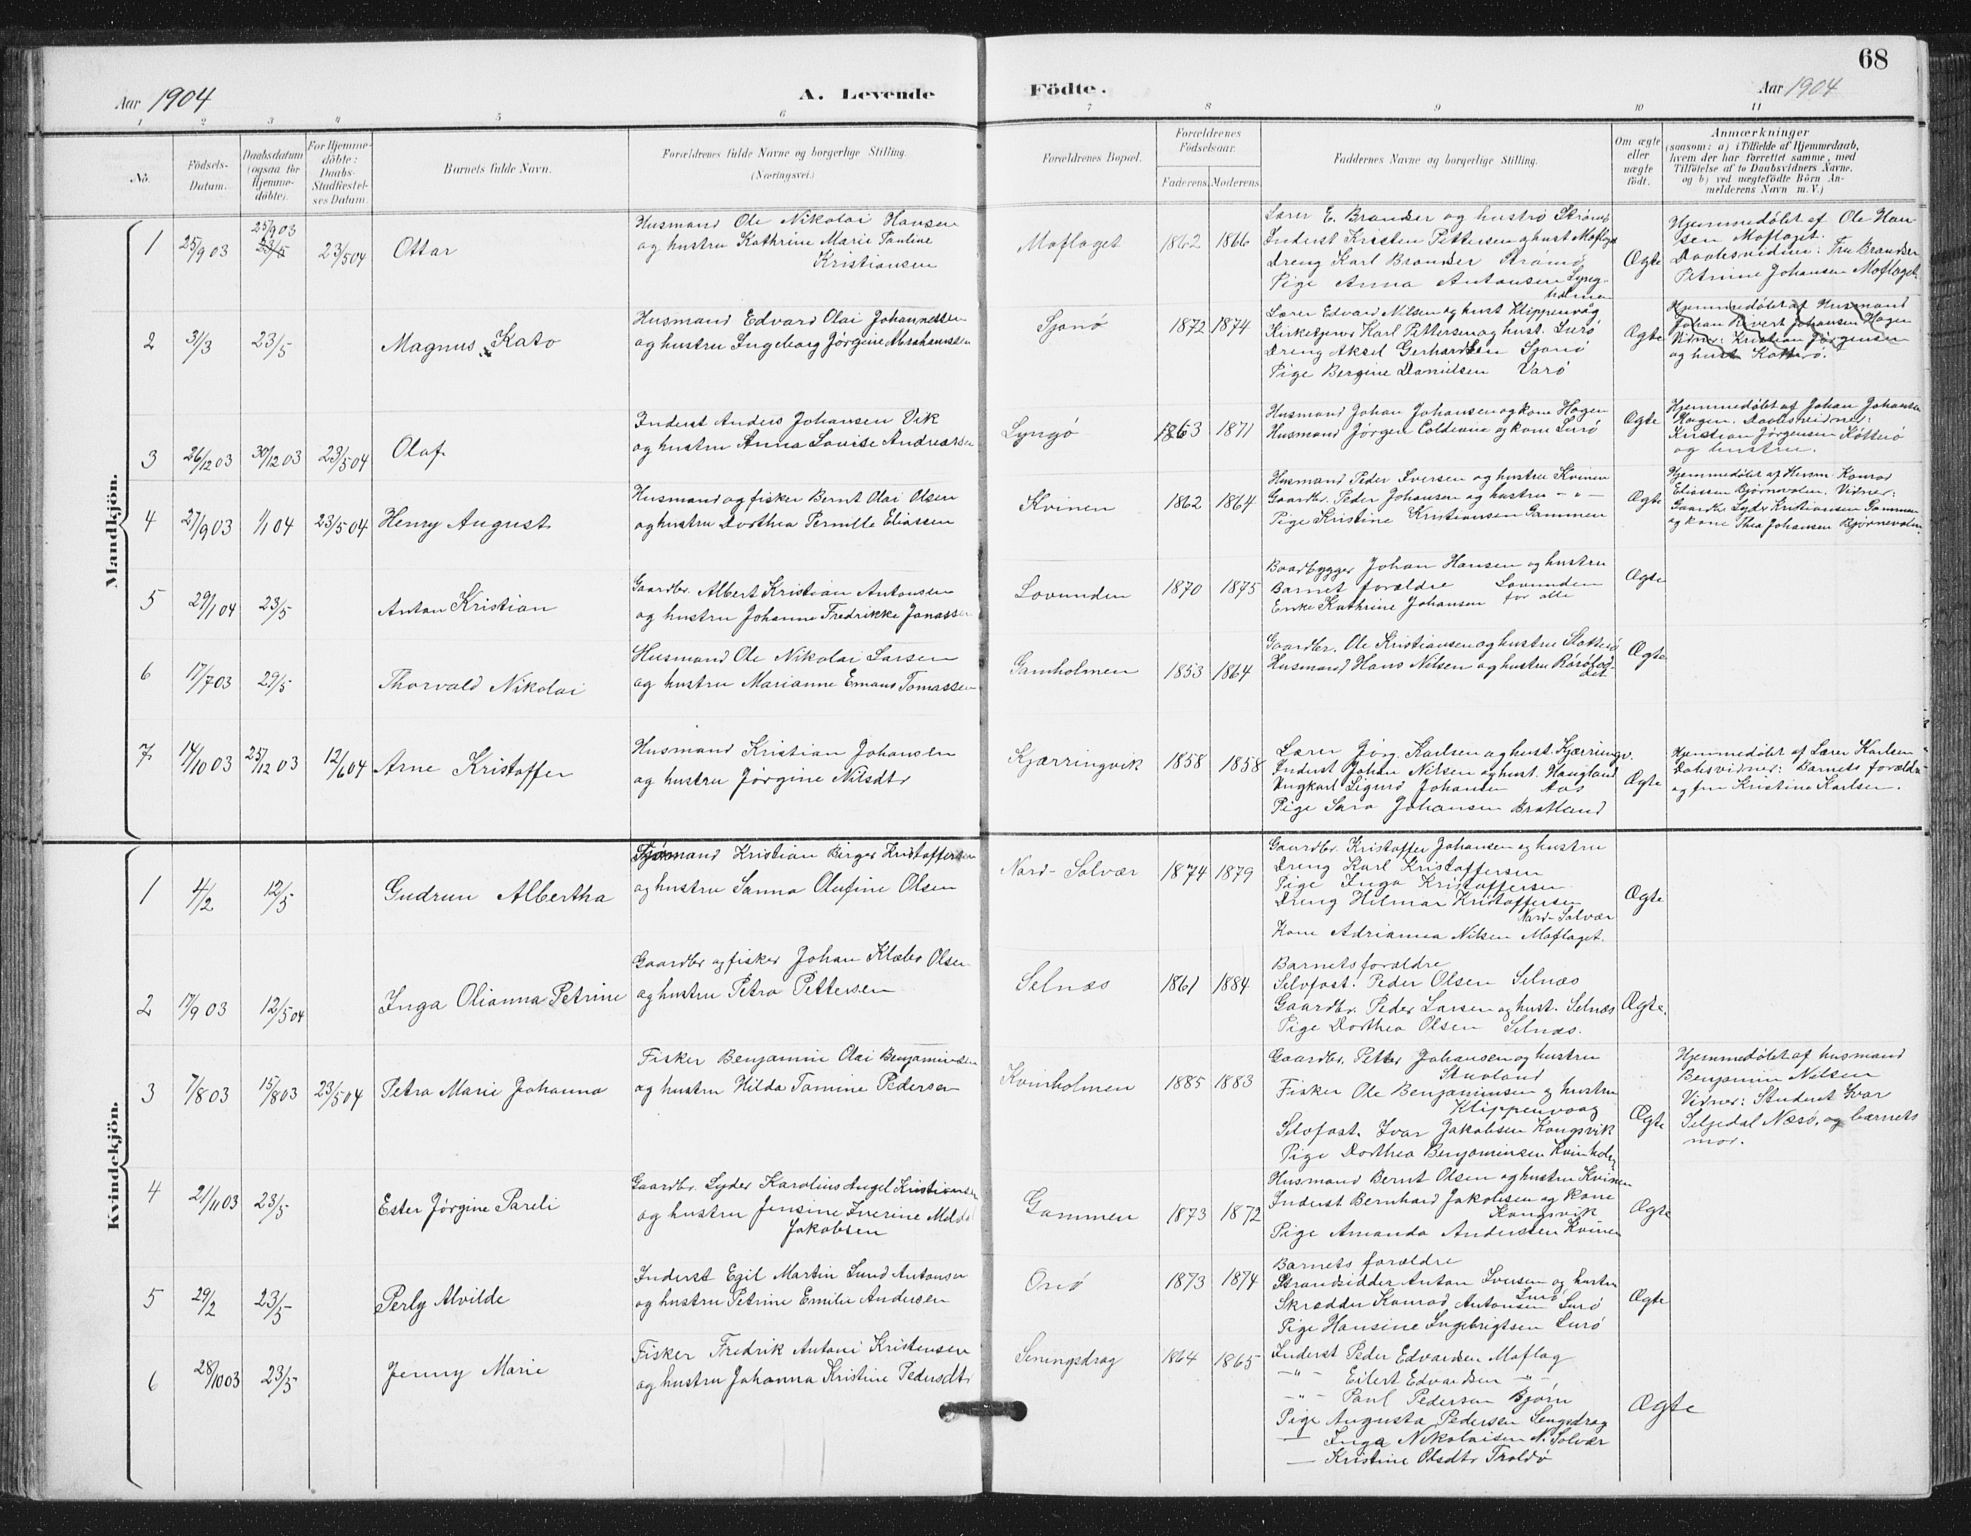 68
Aar 1904
A. Levende
Födte.
Aar 1904
1 2 3 4 5 6 7 8 9 10 11
No.
Födsels-Datum.
Daabsdatum (ogsaa for Hjemme-döbte).
For Hjemme-döbte: Daabs-Stadfæstel-ses Datum.
Barnets fulde Navn.
Forældrenes fulde Navne og borgerlige Stilling. (Næringsvei.)
Forældrenes Bopæl.
Forældrenes Födselsaar.
Faderens. Moderens.
Faddernes Navne og borgerlige Stilling.
Om ægte eller uægte födt.
Anmærkninger
(saasom: a) i Tilfælde af Hjemmedaab, hvem der har forrettet samme, med Tilföielse af to Daabsvidners Navne, og b) ved uægtefödte Börn An-melderens Navn m. V.)
Mandkjön.
1 25/9 03 25/9 03 23/5 23/5 04 Ottar
Husmand Ole Nikolai Hansen
og hustru Kathrine Marie Pauline
Kristiansen
Moflaget 1862 1866
Lærer E. Brandser og hustru Strømø
Inderst Kristen Pettersen og hust Moflaget
Dreng Karl Brandser Strømø
Pige Anna Antonsen Lyng-
holmen
Ægte
Hjemmedøbt af Ole Han
sen Moflaget.
Daabsvidner: Fru Brandser
Petrine Johansen Moflaget.
2 31/3 23/5 Magnus Kato
Husmand Edvard Olai Johannessen
og hustru Ingeborg Jørgine Abrahamsen
Sjonø 1872 1874
Lærer Edvard Nilsen og hust Klippenvåg
Kirketjener Karl Pettersen og hust. Lurø
Dreng Aksel Gerhardsen Sjonø
Pige Bergine Danielsen Varø
Ægte
Hjemmedøbt af Husmand
Johan Hevert Johansen Hagen
Vidner: Kristian Jørgensen
og hust Kotterø.
3 26/12 03 30/12 03 23/5 04 Olaf
Inderst Anders Johansen Vik
og hustru Anna Lovise Andreassen
Lyngø 1863 1871
Husmand Johan Johansen og kone Hagen
Husmand Jørgen Coldevin og kone Lurø
Ægte
Hjemmedøbt af Johan Johansen
Hagen. Daabsvidner:
Kristian Jørgensen Kotterø
og hustru.
4 27/9 03 1/1 04 23/5 04 Henry August
Husmand og fisker Bernt Olai Olsen
og hustru Dorthea Pernille Eliassen
Kvinen 1862 1864
Husmand Peder Iversen og hustru Kvinen
Gaardbr. Peder Johansen og hustru - " -
Pige Kristine Kristiansen Gammen
Ægte
Hjemmedøbt af Husm. Konrad
Eliassen Bjørnvolen. Vidner:
Gaardbr Lyder Kristiansen Gammen
og kone Thea Johansen Bjørnevolen.
5 29/1 04 23/5 Anton Kristian
Gaardbr. Albert Kristian Antonsen
og hustru Johanne Fredrikke Jonassen
Lovunden 1870 1875
Baadbygger Johan Hansen og hustru
Barnet forældre Lovunden
Enke Kathrine Johansen for alle
Ægte
6 17/7 03 29/5 Thorvald Nikolai
Husmand Ole Nikolai Larsen
og hustru Marianne Emans Tomassen
Gamholmen 1853 1864
Gaardbr. Ole Kristiansen og hustru
Husmand Hans Nilsen og hustru
Ægte
7 14/10 03 25/12 03 12/6 04 Arne Kristoffer
Husmand Kristian Johansen
og hustru Jørgine Nilsdtr
Kjærringvik 1858 1858
Lærer Jørg. Karlsen og hust. Kjærringv.
Inderst Johan Nilsen og hust. Haugland
Ungkarl Sigurd Johansen Aas
Pige Sara Johansen Bratland
Ægte
Hjemmedøbt af Lærer Karlsen
Dabsvidner: Barnets forældre
og fru Kristine Karlsen.
Kvindekjön.
1 4/2 12/5 Gudrun Albertha
Sjømand Kristian Birger Kristoffersen
og hustru Sanna Olufine Olsen
Nord-Solvær 1874 1879
Gaardbr. Kristoffer Johansen og hustru
Dreng Karl Kristoffersen
Pige Inga Kristoffersen
Dreng Hilmar Kristoffersen
Nord-Solvær
Kone Adrianna Nilsen Moflaget.
Ægte
2 17/9 03 12/5 04 Inga Olianna Petrine
Gaardbr og fisker Johan Klæbo Olsen
og hustru Petra Pettersen
Selnæs 1861 1884
Barnets forældre
Selvfost. Peder Olsen Selnæs
Gaardbr. Peder Larsen og hust. Selnæs
Pige Dorthea Olsen Selnæs.
Ægte.
3 7/8 03 15/8 03 23/5 04 Petra Marie Johanna
Fisker Benjamin Olai Benjaminsen
og hustru Hilda Tomine Pedersen
Kvinholmen 1885 1883
Gaardbr. Petter Johansen og hustru
Stuvland
Fisker Ole Benjaminsen og hustru
Klippenvaag
Selvfost. Ivar Jakobsen Kongsvik
Pige Dorthea Benjaminsen Kvinholm
Ægte
Hjemmedøbt af husmand
Benjamin Nilsen
Vidner: Student Ivar
Seljedal Næsø, og barnets
mor.
4 21/11 03 23/5 Ester Jørgine Pareli
Gaardbr. Lyder Karolius Angel Kristiansen
og hustru Jensine Iverine
Jakobsen
Gammen 1873 1872
Husmand Bernt Olsen og hustru Kvinen
Inderst Bernhard Jakobsen og kone
Kongsvik
Pige Amanda Andersen Kvinen
Ægte
5 29/2 23/5 Perly Alvilde
Inderst Egil Martin Lund Antonsen
og hustru Petrine Emilie Andersen
Onø 1873 1874
Barnets forældre
Strandsidder Anton Iversen og hustru
Lurø
Skrædder Konrad Antonsen Lurø
Pige Hansine Ingebrigtsen Lurø
Ægte
6 28/10 03 23/5 Jenny Marie
Fisker Fredrik Antoni Kristensen
og hustru Johanna Kristine Pedersdtr
Seningsdrag 1864 1865
Inderst Peder Edvardsen Moflag
-"- Eilert Edvardsen -"-
-"- Paul Pedersen Bjørn
Pige Augusta Pedersen Sengsdrag
— Inga Nikolaisen N. Solvær
— Kristine Olsdtr Troldø
Ægte